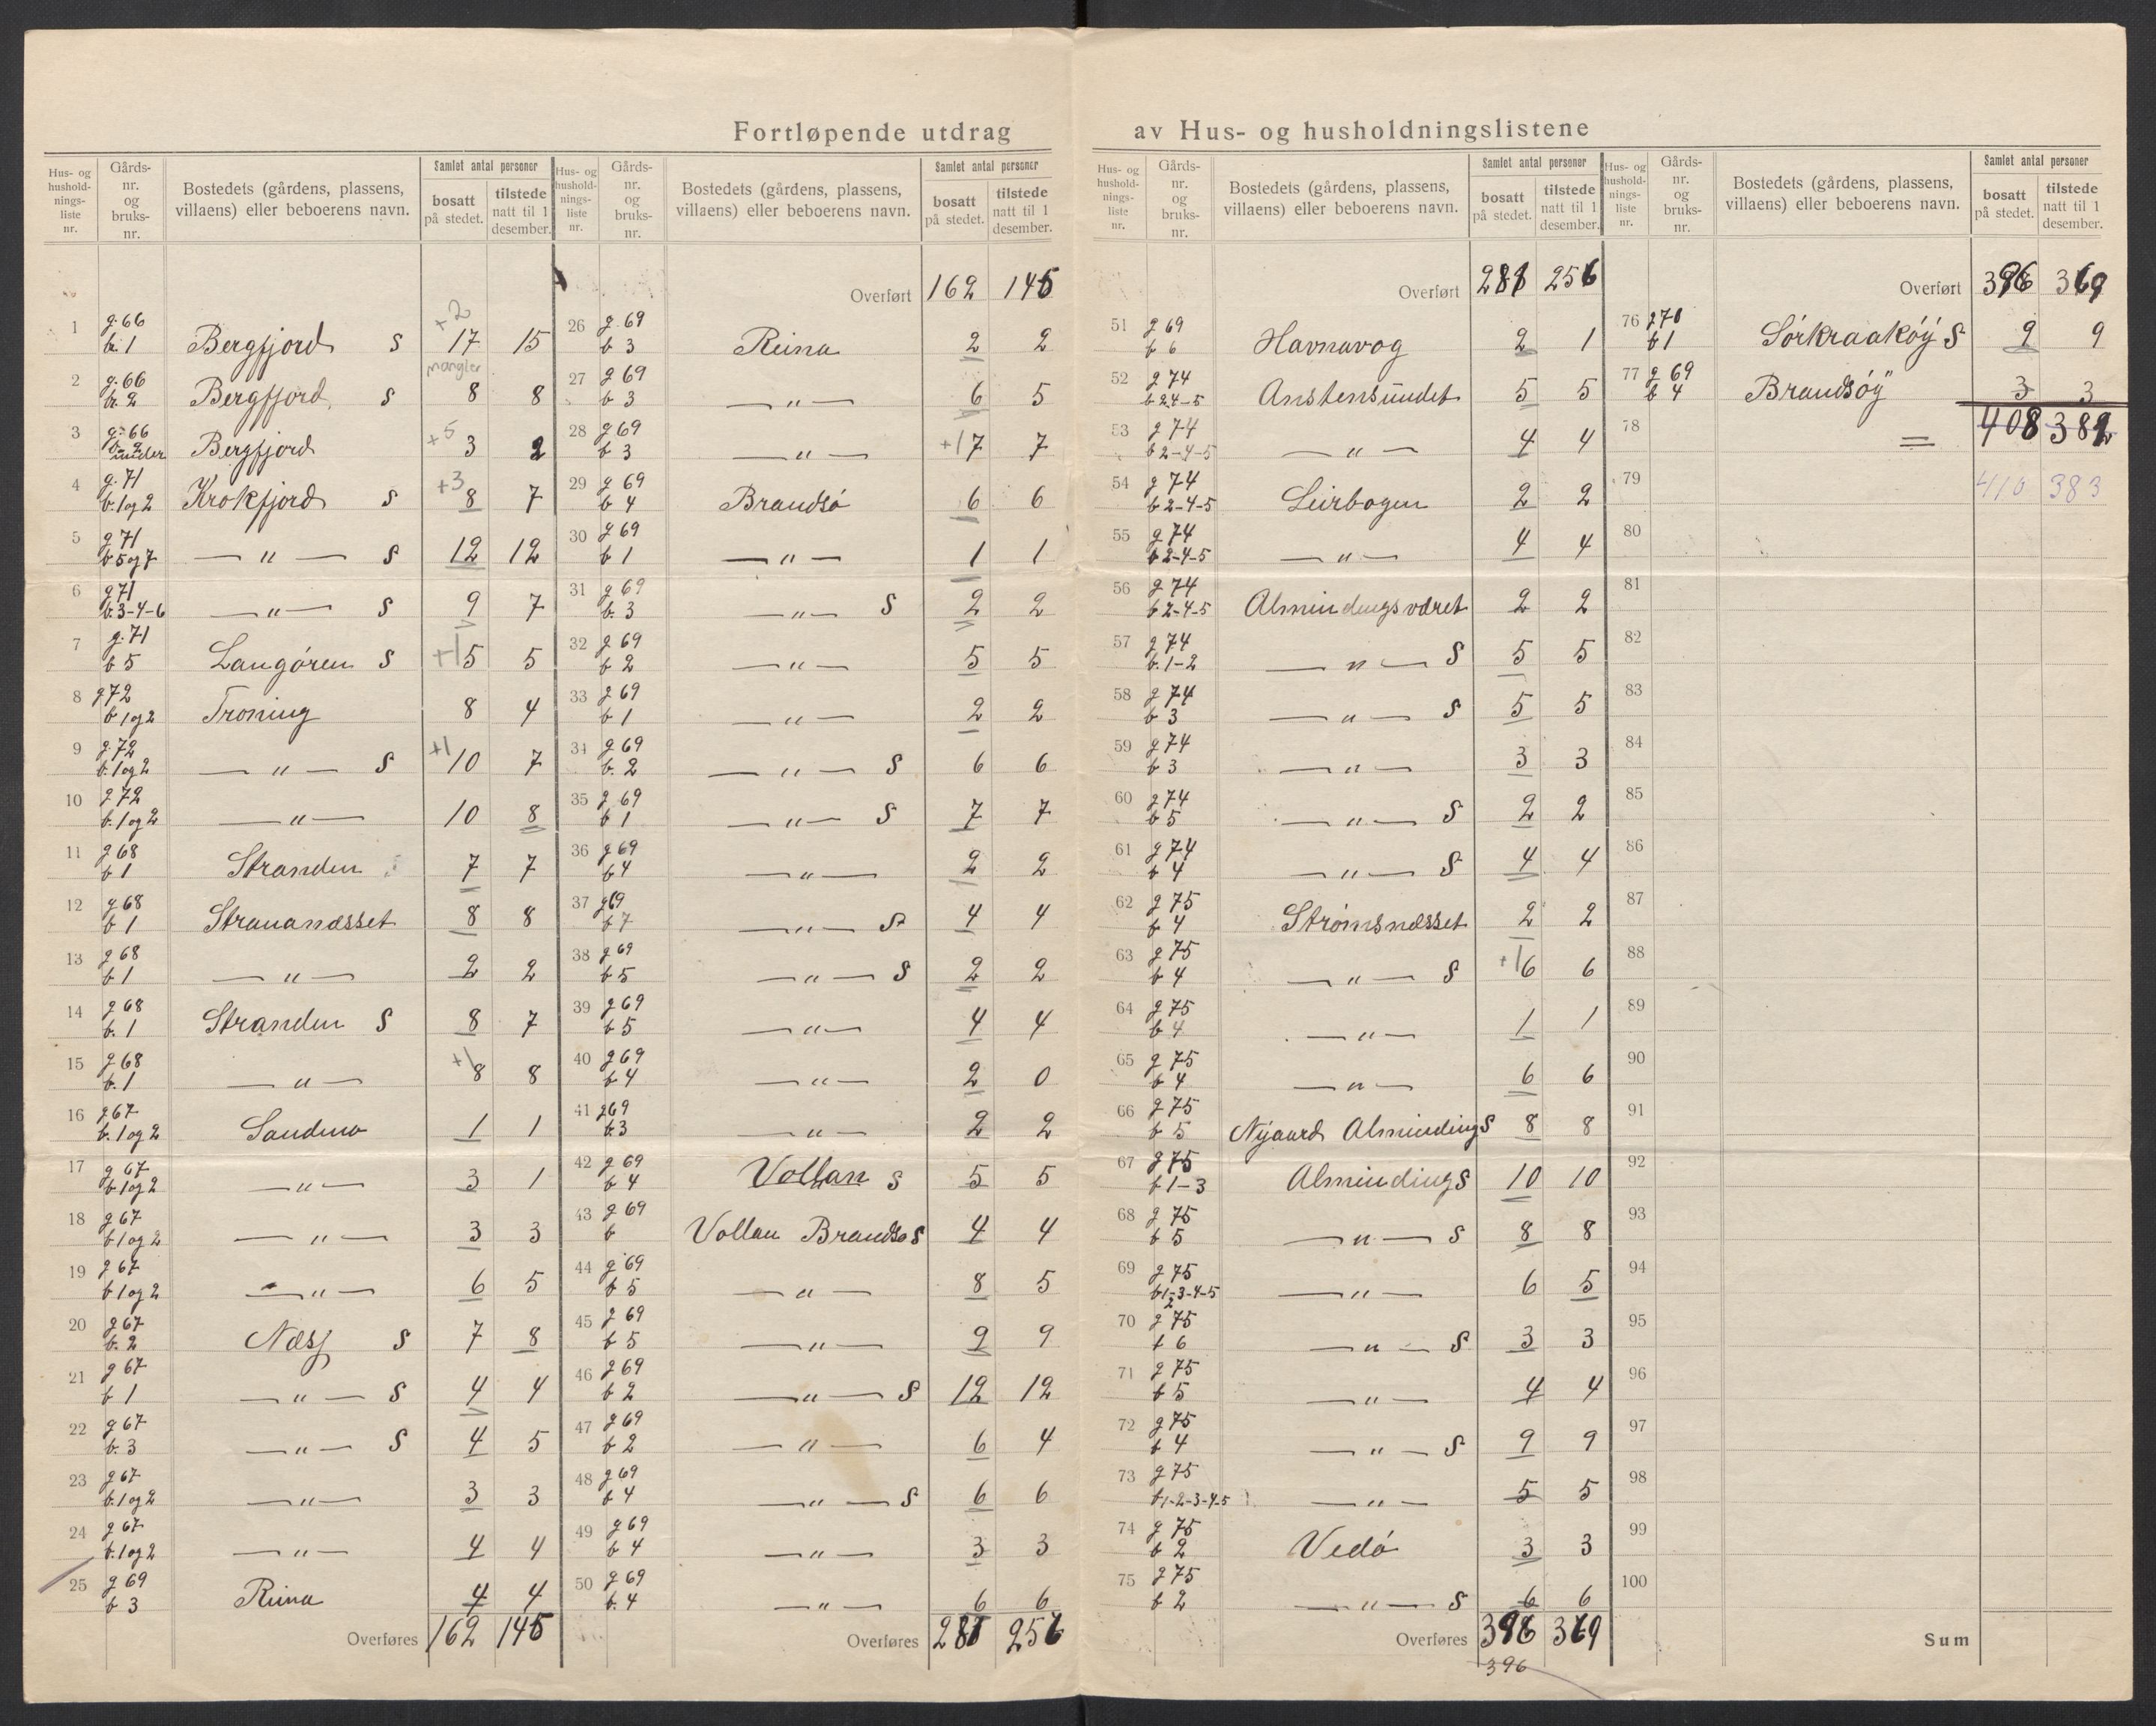 Fortløpende utdrag av Hus- og husholdningslistene
Hus- og hushold-nings-liste nr. | Gårds-nr. og bruks-nr. | Bostedets (gårdens, plassens, villaens) eller beboerens navn. | Samlet antal personer | bosatt på stedet. | tilstede natt til 1 desember.
+2
1 g. 66 b. 1 Bergfjord S 17 15
mangler
2 g. 66 b. 2 Bergfjord S 8 8
3 g. 66 under Bergfjord +5 3 2
4 g. 71 b. 1 og 2 Krokfjord S +3 8 7
5 g 71 b 5 og 7 — " — S 12 12
6 g 71 b. 3-4-6 — " — S 9 7
7 g. 71 b 5 Langören S +1 5 5
8 g 72 b 1 og 2 Troning 8 4
9 g. 72 b. 1 og 2 — " — S +1 10 7
10 g 72 b. 1 og 2 — " — 10 8
11 g 68 b 1 Stranden 7 7
12 g. 68 b 1 Strauanæsset 8 8
13 g 68 b 1 — " — 2 2
14 g 68 b. 1 Stranden S 8 7
15 g 68 b. 1 — " — +1 8 8
16 g 67 b. 1 og 2 Sandmo 1 1
17 g 67 b 1 og 2 — " — 3 1
18 g 67 b 1 og 2 — " — 3 3
19 g 67 b 1 og 2 — " — 6 5
20 g 67 b. 2 Næss S 7 8
21 g 67 b 1 — " — S 4 4
22 g 67 b. 3 — " — S 4 5
23 g 67 b. 1 og 2 — " — 3 3
24 g 67 b. 1 og 2 — " — 4 4
25 g 69 b 3 Reina 4 4
Overføres 162 145
Hus- og hushold-nings-liste nr. | Gårds-nr. og bruks-nr. | Bostedets (gårdens, plassens, villaens) eller beboerens navn. | Samlet antal personer | bosatt på stedet. | tilstede natt til 1 desember.
Overført 162 145
26 g. 69 b 3 Reina 2 2
27 g 69 b 3 — " — 6 5
28 g 69 b 3 — " — +1 7 7
29 g 69 b 4 Brandsö 6 6
30 g 69 b 1 — " — 1 1
31 g 69 b. 3 — " — S 2 2
32 g 69 b 2 — " — 5 5
33 g 69 b 1 — " — 2 2
34 g 69 b. 2 — " — S 6 6
35 g 69 b 1 — " — S 7 7
36 g 69 b 4 — " — 2 2
37 g 69 b 7 — " — S 4 4
38 g 69 b 5 — " — S 2 2
39 g 69 b 5 — " — 4 4
40 g 69 b 4 — " — 2 0
41 g 69 b. 3 — " — 2 2
42 g 69 b 4 Vollan S 5 5
43 g 69 b Vollan Brandsö S 4 4
44 g 69 b 5 — " — 8 5
45 g 69 b 5 — " — 9 9
46 g 69 b 2 — " — S 12 12
47 g 69 b 2 — " — 6 4
48 g 69 b 4 — " — S 6 6
49 g 69 b 4 — " — 3 3
50 g 69 b. 4 — " — 6 6
Overføres 281 256
Hus- og hushold-nings-liste nr. | Gårds-nr. og bruks-nr. | Bostedets (gårdens, plassens, villaens) eller beboerens navn. | Samlet antal personer | bosatt på stedet. | tilstede natt til 1 desember.
Overført 281 256
51 g 69 b 6 Havnavog 2 1
52 g 74 b 2 4-5 Anstensundet 5 5
53 g 74 b 2-4-5 — " — 4 4
54 g 74 b 2-4-5 Leirbogen 2 2
55 g 74 b 2-4-5 — " — 4 4
56 g 74 b 2-4-5 Almindingsværet 2 2
57 g 74 b. 1-2 — " — S 5 5
58 g 74 b 3 — " — S 5 5
59 g 74 b 3 — " — 3 3
60 g 74 b 5 — " — S 2 2
61 g 74 b 4 — " — S 4 4
62 g 75 b 4 Strömsnæsset 2 2
63 g 75 b 4 — " — S +1 6 6
64 g 75 b 4 — " — 1 1
65 g 75 b 4 — " — 6 6
66 g 75 b 5 Nygaard Almindings 8 8
67 g 75 b 1-3 Almindings 10 10
68 g 75 b 5 — " — S 8 8
69 g 75 b 1-3-4-5 2 — " — 6 5
70 g 75 b 6 — " — S 3 3
71 g 75 b 5 — " — 4 4
72 g 75 b 4 — " — S 9 9
73 g 75 b 1-2-3-4-5 — " — 5 5
74 g 75 b 2 Vedö 3 3
75 g 75 b 2 — " — S 6 6
Overføres 396 369
396
Hus- og hushold-nings-liste nr. | Gårds-nr. og bruks-nr. | Bostedets (gårdens, plassens, villaens) eller beboerens navn. | Samlet antal personer | bosatt på stedet. | tilstede natt til 1 desember.
Overført 396 369
76 g 70 b 1 Sörkraaköy S 9 9
77 g 69 b 4 Brandsöy 3 3
78 = 408 381
79 410 383
80
81
82
83
84
85
86
87
88
89
90
91
92
93
94
95
96
97
98
99
100
Sum